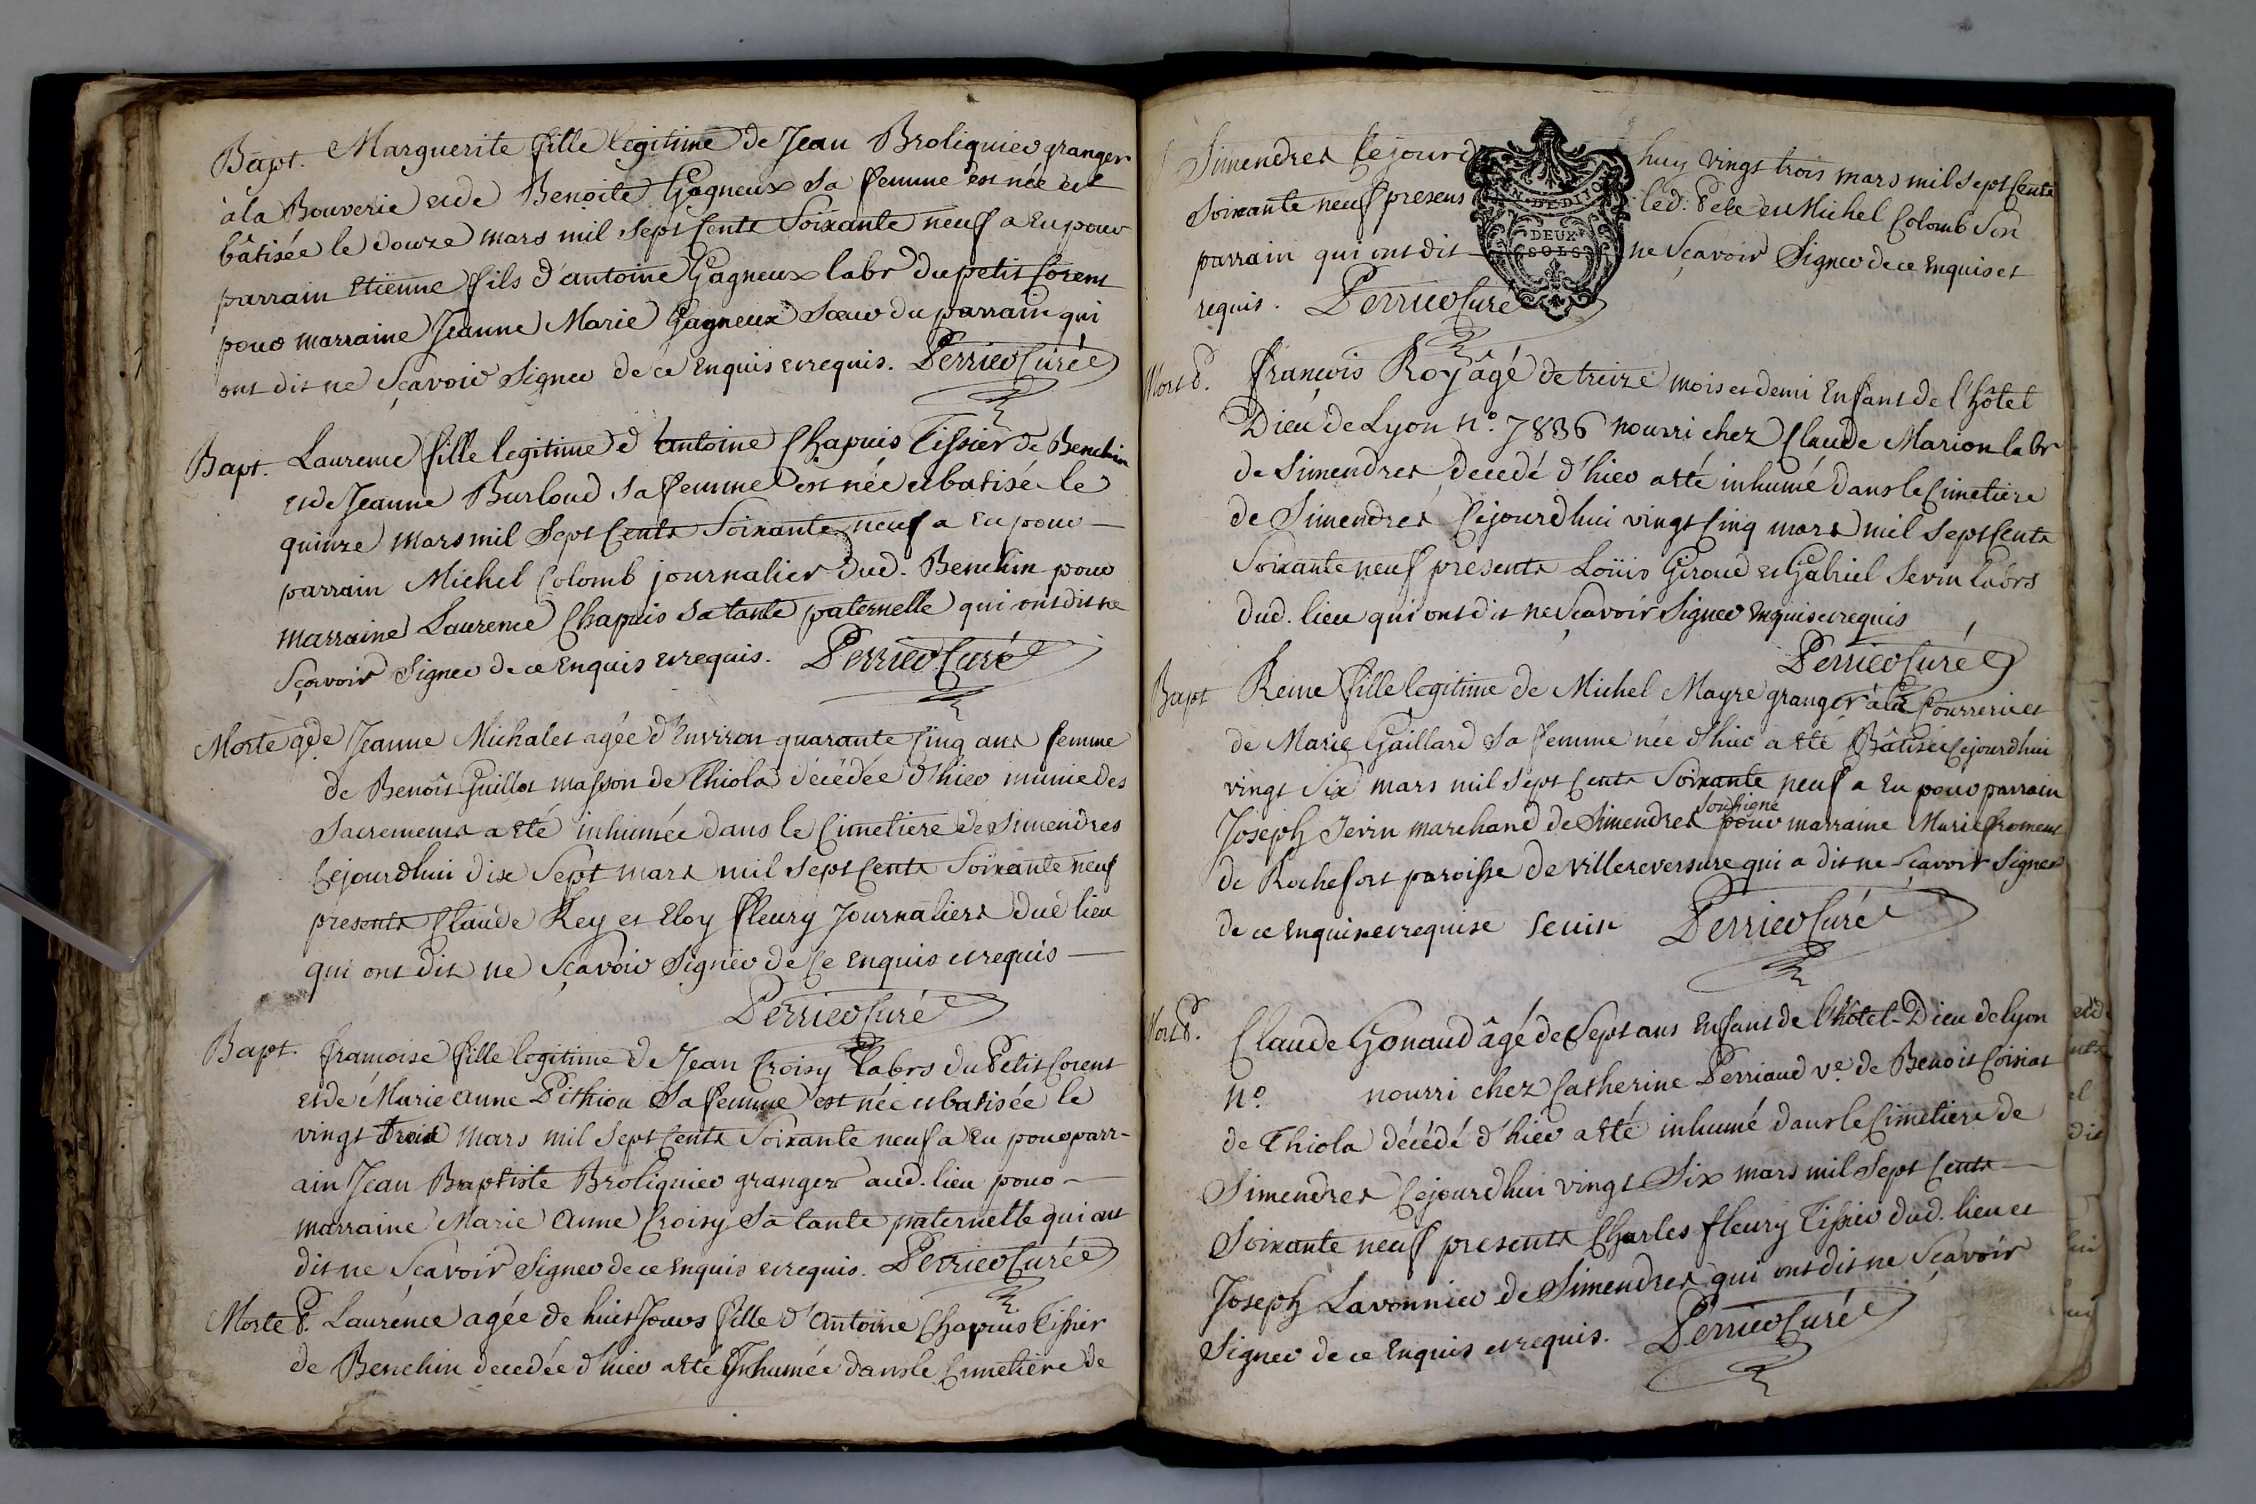 Bapt. Marguerite fille legitime de Jean Broliquier granger
à la Bouverie et de Benoite Gagneux sa femme est née et
bâtisée le douze mars mil sept cents soixante neuf a eu pour
parrain etienne fils d'antoine Gagneux labr du petit Corent
pour marraine Jeanne Marie Gagneux soeur du parrain qui
ont dit ne sçavoir signer de ce enquis et requis. Perrier Curé
Bapt. Laurence fille legitime d'antoine Chapuis Tissier de Benchin
et de Jeanne Burloud sa femme est née et batisée le
quinze mars mil sept cents soixante neuf a eu pour
parrain Michel Colomb journalier dud. Benchin pour
marraine Laurence Chapuis sa tante paternelle qui ont dit ne
sçavoir signer de ce enquis et requis. Perrier Curé
Morte gde Jeanne Michalet agée d'environ quarante cinq ans femme
de Benoit Guillot masson de Thiola décédée d'hier munie des
sacrements a eté inhumée dans le Cimetiere de Simendres
cejourdhui dix sept mars mil sept cents soixante neuf
presents Claude Rey et Eloy fleury journaliers dud lieu
qui ont dit ne sçavoir signer de ce enquis et requis
Perrier Curé
Bapt. francoise fille legitime de Jean Croisy labrs du Petit Corent
et de Marie Anne Pithiou sa femme est née et batisée le
vingt trois mars mil sept cents soixante neuf a eu pour parr-
ain Jean Baptiste Broliquier granger aud. lieu pour
marraine Marie Anne Croisy sa tante paternelle qui ont
dit ne sçavoir signer de ce enquis et requis. Perrier Curé
Morte P. Laurence agée de huit jours fille d'Antoine Chapuis tissier
de Benchin decedée d'hier a eté inhumée dans le Cimetiere de
Simendres cejourd huy vingt trois mars mil sept cents
soixante neuf presens led. Pere et Michel Colomb son
parrain qui ont dit ne sçavoir signer de ce enquis et
requis. Perrier Curé
GEN. DE DIJON
DEUX
SOLS
Mort P. françois Roy âgé de treize mois et demi enfant de l'hôtel
Dieu de Lyon n°. 7836 nourri chez Claude Marion labr
de Simendres decedé d'hier a eté inhumé dans le Cimetiere
de Simendres cejourdhui vingt cinq mars mil sept cents
soixante neuf presents Loüis Giroud et Gabriel Sevin labrs
dud. lieu qui ont dit ne sçavoir signer enquis et requis
Perrier Curé
Bapt Reine fille legitime de Michel Mayre granger à la Courrerie et
de Marie Gaillard sa femme née d'hier a eté Bâtisée cejourdhui
vingt six mars mil sept cents soixante neuf a eu pour parrain
Joseph Sevin marchand de Simendres soussigné pour marraine Marie froment
de Rochefort paroisse de Villereversure qui a dit ne sçavoir signer
de ce enquise et requise Sevin Perrier Curé
Mort P. Claude Gonaud âgé de sept ans enfant de l'hôtel-Dieu de Lyon
n°. nourri chez Catherine Perriaud ve. de Benoit Coisiat
de Thiola décédé d'hier a eté inhumé dans le Cimetiere de
Simendres cejourdhui vingt six mars mil sept cents
soixante neuf presents Charles fleury tissier dud. lieu et
Joseph Lavonnier de Simendres qui ont dit ne sçavoir
signer de ce enquis et requis. Perrier Curé